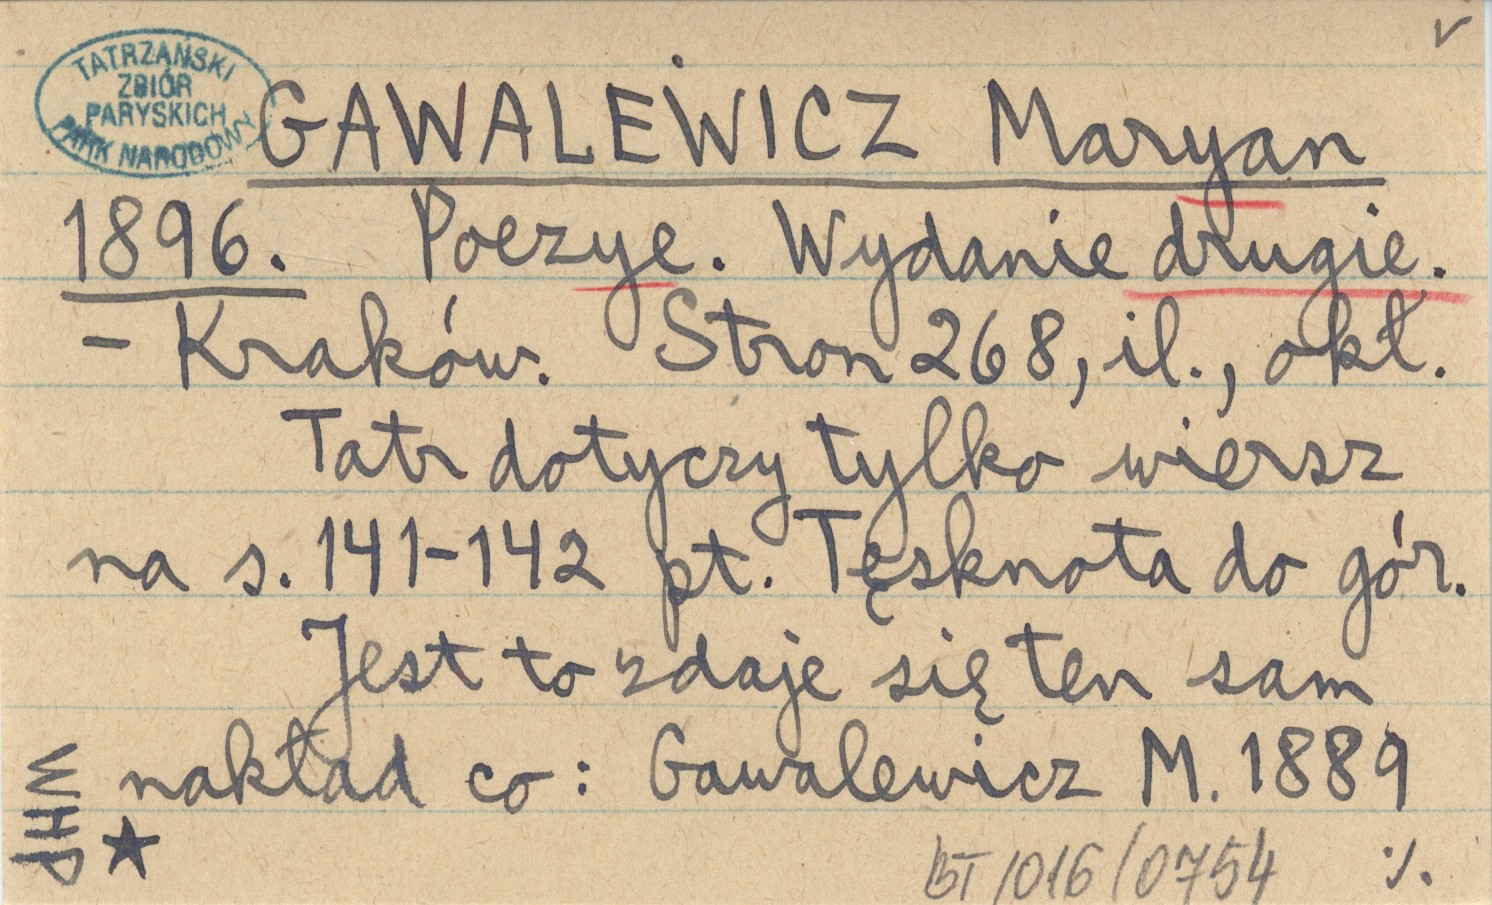 TATRZAŃSKI
ZBIÓR
PARYSKICH
PARK NARODOWY
GAWALEWICZ Maryan
1896. Poezye. Wydanie drugie.
- Kraków. Stron 268, il., okł.
Tatr dotyczy tylko wiersz
na s. 141-142 pt. Tęsknota do gór.
Jest to zdaje się ten sam
nakład co: Gawalewicz M. 1889
WHP
★
BT/016/0754 ./.